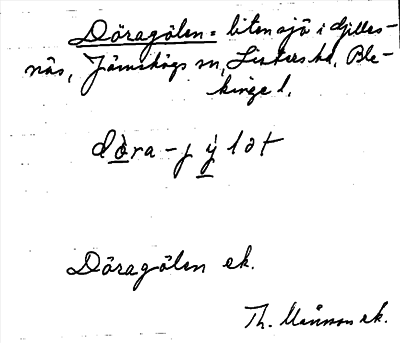 Döragölen = liten sjö i Gilles-
näs, Jämshögs sn, Listers hd, Ble-
kinge l.
dòra-jỳlöt
Döragölen ek.
Th. Månson ek.